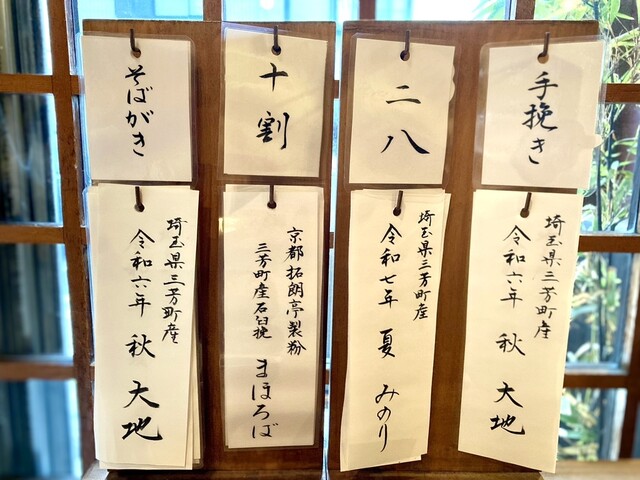 手挽き
埼玉県三芳町産
令和六年 秋 大地
二八
埼玉県三芳町産
令和七年 夏 みのり
十割
京都拓朗亭製粉
三芳町産石臼挽
まほろば
そばがき
埼玉県三芳町産
令和六年 秋 大地